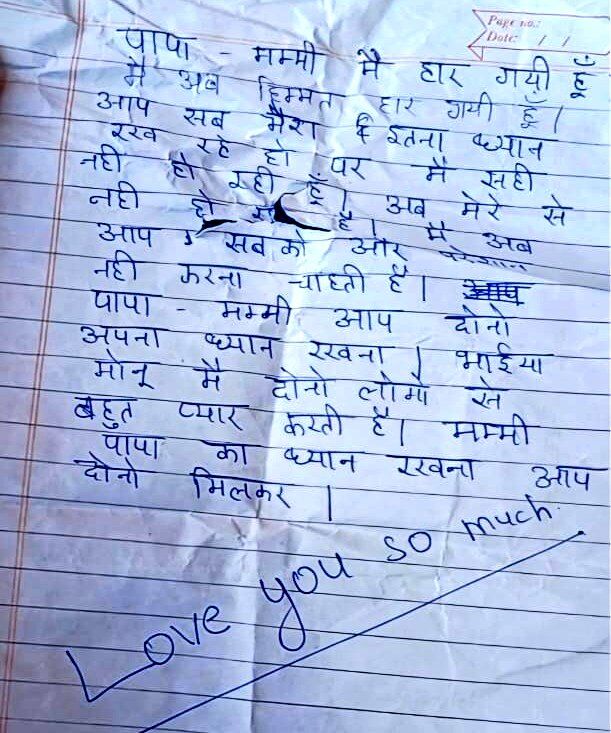 Page no.:
Date: / /
पापा मम्मी मै हार गयी हूँ
मै अब हिम्मत हार गयी हूँ।
आप सब मेरा इतना ध्यान
रख रहे हो पर मै सही
नही हो रही हूँ। अब मेरे से
नही हो है। मै अब
आप सबको और परेशान
नही करना चाहती है। आप
पापा - मम्मी आप दोनो
अपना ध्यान रखना। भाईया
मोनू मै दोनो लोगो से
बहुत प्यार करती है। मम्मी
पापा का ध्यान रखना आप
दोनो मिलकर।
Love you so much.